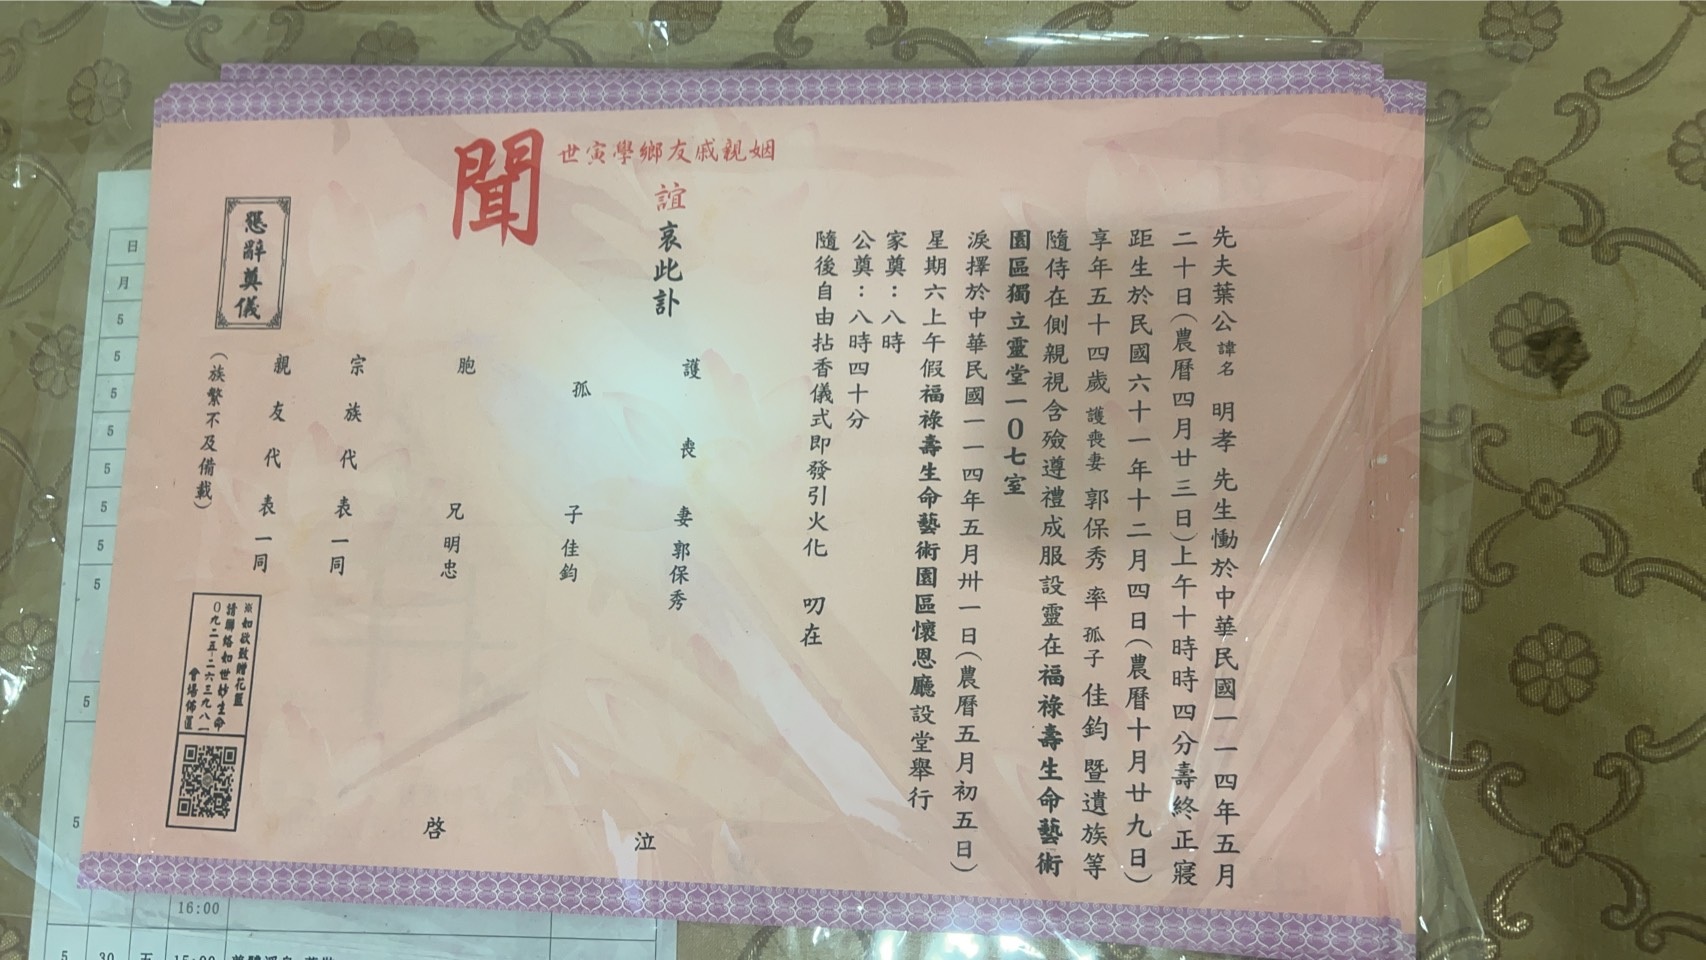 先夫葉公諱名 明孝 先生慟於中華民國一一四年五月
二十日(農曆四月廿三日)上午十時時四分壽終正寢
距生於民國六十一年十二月四日(農曆十月廿九日)
享年五十四歲 護喪妻 郭保秀 率 孤子 佳鈞 暨遺族等
隨侍在側親視含殮遵禮成服設靈在福祿壽生命藝術
園區獨立靈堂一0七室
淚擇於中華民國一一四年五月卅一日(農曆五月初五日)
星期六上午假福祿壽生命藝術園區懷恩廳設堂舉行
家奠：八時
公奠：八時四十分
隨後自由拈香儀式即發引火化 叨在
姻親戚友鄉學寅世
誼哀此訃
聞
護喪妻 郭保秀
孤子 佳鈞
泣
胞兄 明忠
宗族代表一同
啓
親友代表一同
(族繁不及備載)
懇辭奠儀
※如欲致贈花籃
請聯絡如世妙生命
0九二五-二六三九八一
會場佈置
日
月
5
5
5
5
5
5
5
5
5
16:00
5 30 五 15:00